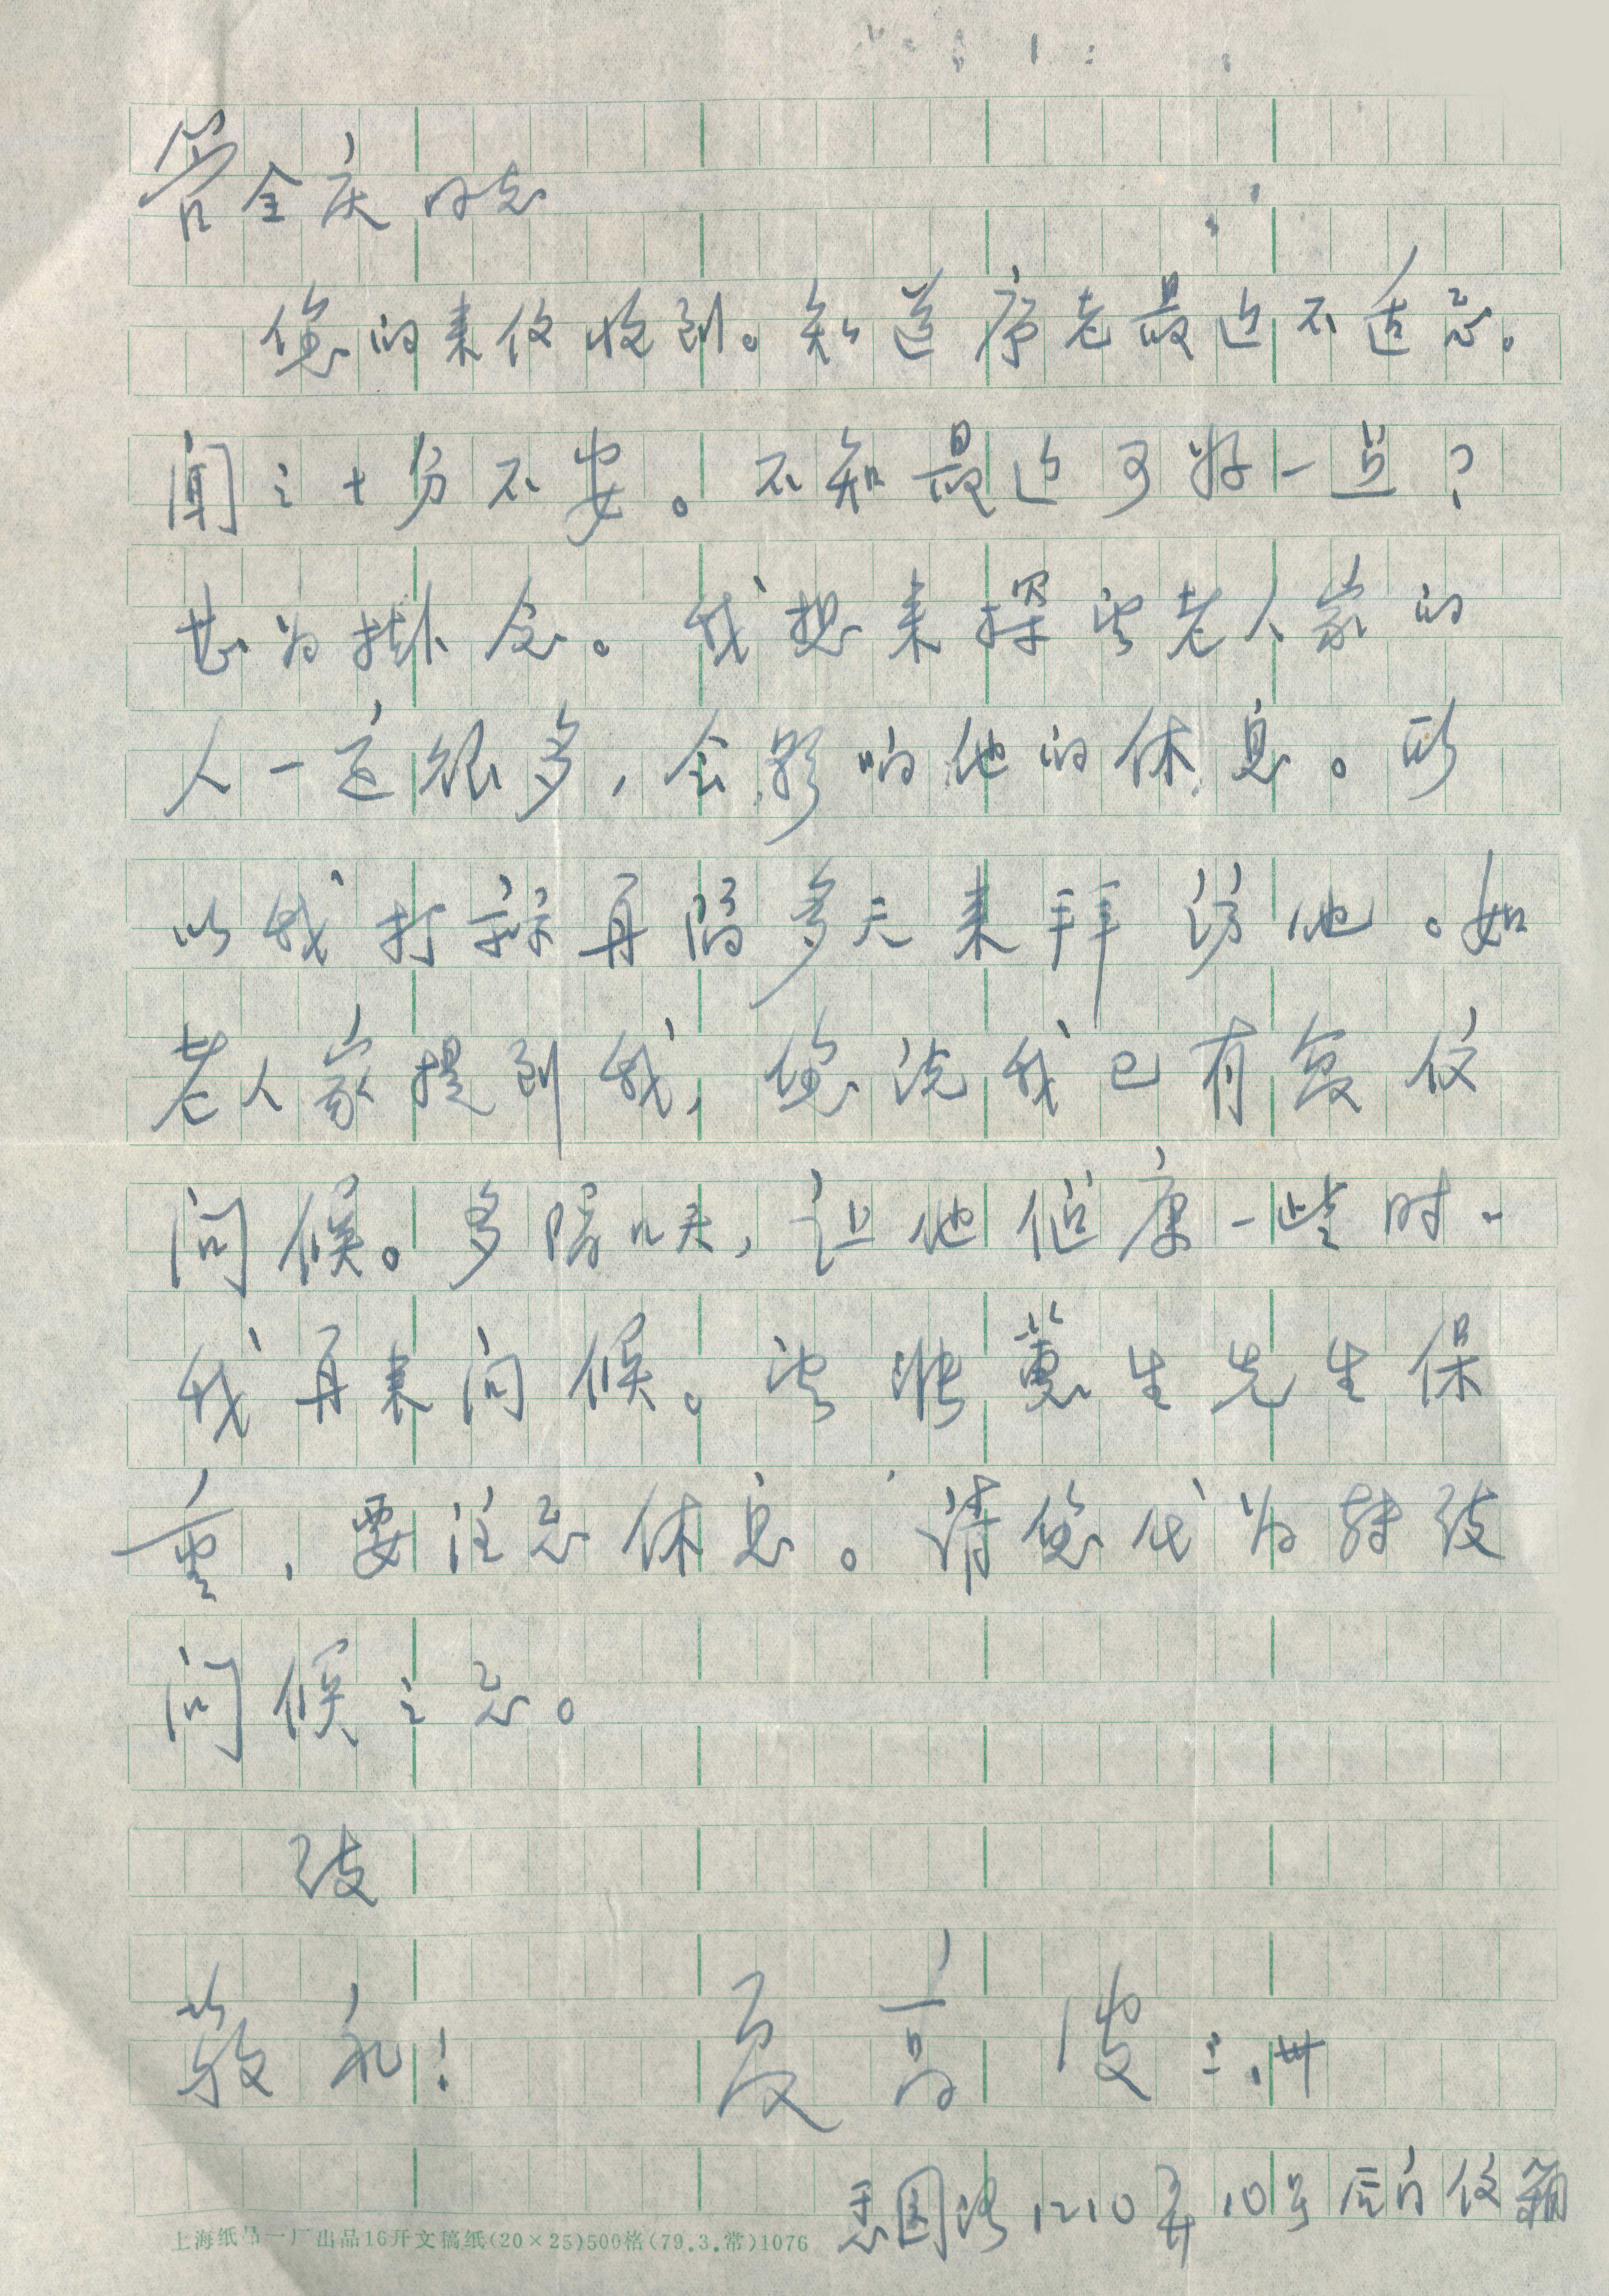 管全庆同志
您的来信收到。知道康老最近不适意。
闻之十分不安。不知最近可好一点？
甚为挂念。我想来探望老人家的
人一定很多，会影响他的休息。所
以我打算再隔多天来拜访他。如
老人家提到我，您说我已有复信
问候。多隔几天，让他健康一些时，
我再来问候。望张蕙生先生保
重，要注意休息。请您代为转致
问候之意。
致
敬礼！ 夏高俊 三.卅
思国路1210弄10号后门信箱
上海纸品一厂出品16开文稿纸(20×25)500格(79.3.常)1076